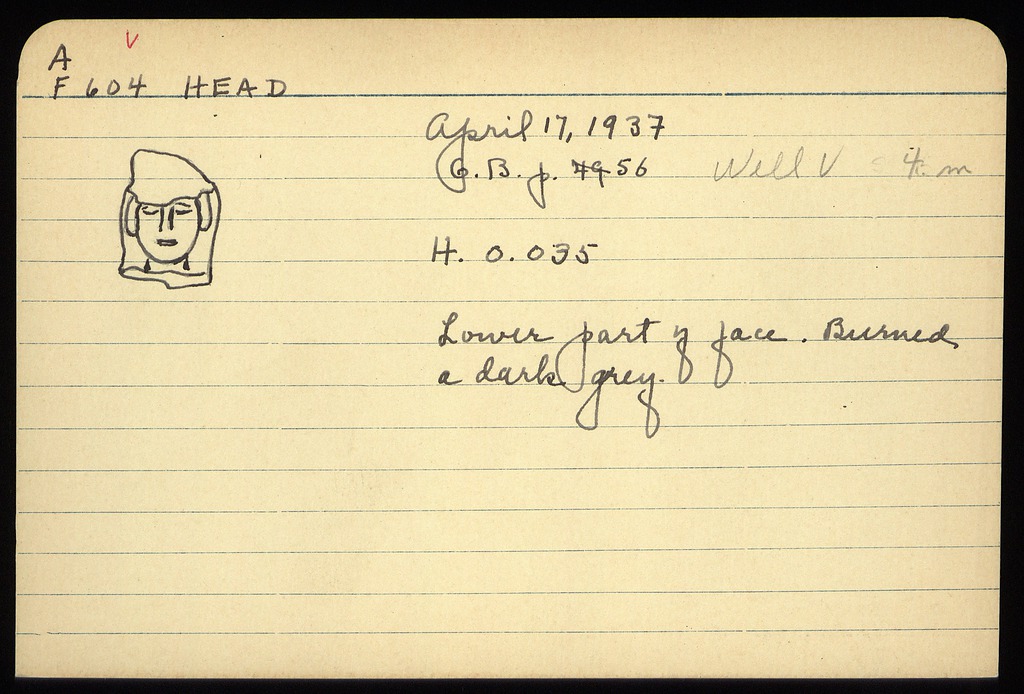 A V
F 604 HEAD
April 17, 1937
G.B. p. 49 56 Well V 4. m
H. 0.035
Lower part of face. Burned
a dark grey.